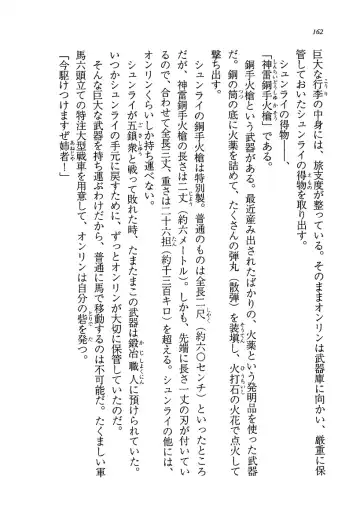 162
巨大な行李の中身には、旅支度が整っている。そのままオンリンは武器庫に向かい、厳重に保
管しておいたシュンライの得物を取り出す。
シュンライの得物――。
「神雷銅手火槍」である。
銅手火槍という武器がある。最近産み出されたばかりの、火薬という発明品を使った武器
だ。銅の筒の底に火薬を詰めて、たくさんの弾丸（散弾）を装填し、火打石の火花で点火して
撃ち出す。
だが、神雷銅手火槍は特別製。普通のものは全長二尺（約六〇センチ）といったところ
だが、神雷銅手火槍の長さは二丈（約六メートル）。しかも、先端に長さ一丈の刃が付いてい
るので、合わせて全長三丈、重さは二十六担（約千三百キロ）を超える。シュンライの他には、
オンリンくらいしか持ち運べない。
シュンライが五鎮衆と戦って敗れた時、たまたまこの武器は鍛冶職人に預けられていた。
いつかシュンライの手元に戻すために、ずっとオンリンが大切に保管していたのだ。
そんな巨大な武器を持ち運ぶわけだから、普通に馬で移動するのは不可能だ。たくましい軍
馬六頭立ての特注大型戦車を用意して、オンリンは自分の砦を発つ。
「今駆けつけますぜ姉者！」